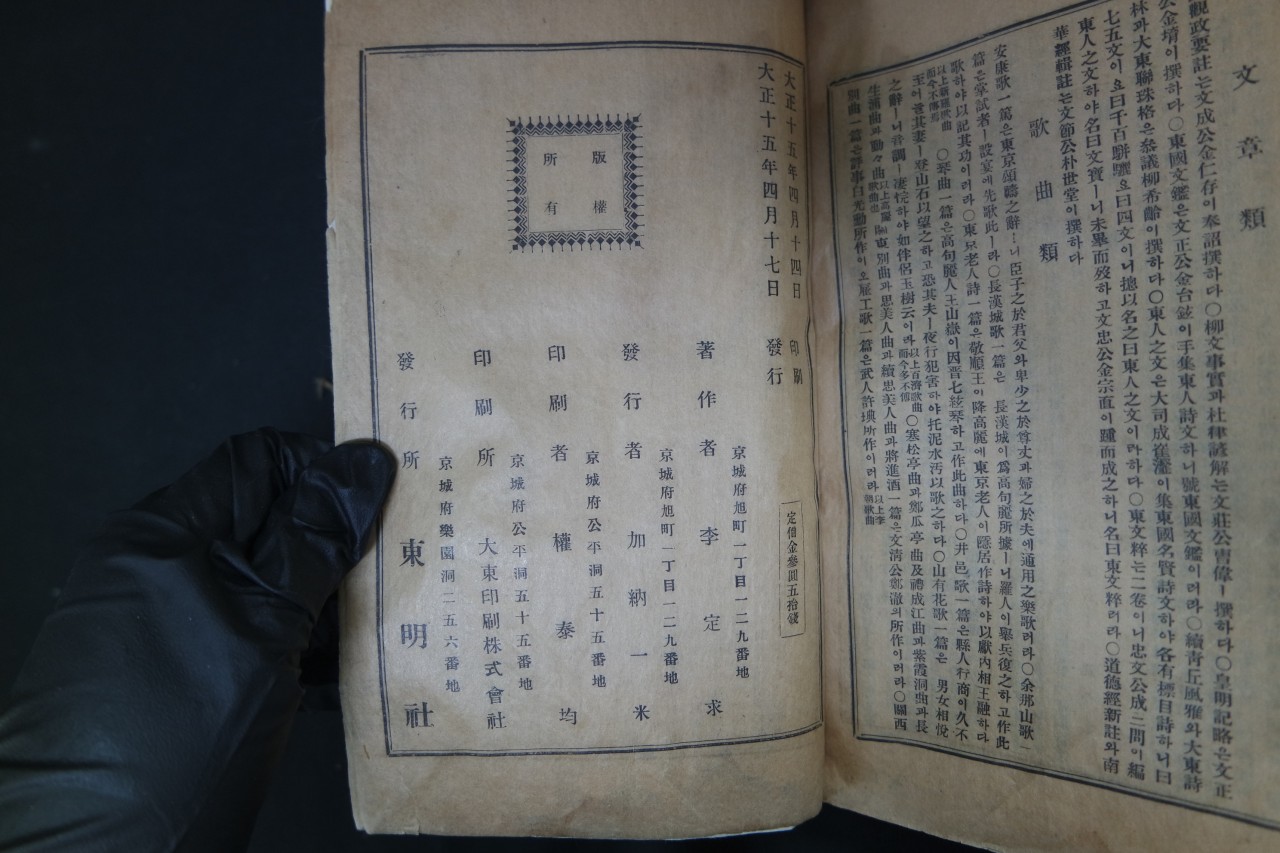 文章類
觀政要註는文成公金仁存이奉詔撰하다○柳文事實과杜律諺解는文莊公曺偉ㅣ撰하다○皇明記略은文正
公金堉이撰하다○東國文鑑은文正公金台鉉이手集東人詩文하니號東國文鑑이러라○續靑丘風雅와大東詩
林과大東聯珠格은叅議柳希齡이撰하다○東人之文은大司成崔瀣이集東國名賢詩文하야各有標目詩하니曰
七五文이요曰千百騈驪요曰四文이니摠以名之曰東人之文이라하다○東文粹는二卷이니忠文公成三問이編
東人之文하야名曰文寶ㅣ니未畢而歿하고文忠公金宗直이踵而成之하니名曰東文粹러라○道德經新註와南
華經輯註는文節公朴世堂이撰하다
歌曲類
安康歌一篇은東京頌禱之辭ㅣ니臣子之於君父와卑少之於尊丈과婦之於夫에通用之樂歌러라○余那山歌一
篇은掌試者ㅣ設宴에先歌此ㅣ라○長漢城歌一篇은長漢城이爲高句麗所據ㅣ니羅人이擧兵復之하고作此
歌하야以記其功이러라○東京老人詩一篇은敬順王이降高麗에東京老人이隱居作詩하야以獻內相王融하다
以上新羅歌曲而今不傳焉○琴曲一篇은高句麗人王山嶽이因晋七絃琴하고作此曲하다○井邑歌一篇은縣人行商이久不
至어늘其妻ㅣ登山石以望之하고恐其夫ㅣ夜行犯害하야托泥水汚以歌之하다○山有花歌一篇은男女相悅
之辭ㅣ니音調ㅣ凄惋하야如伴侶玉樹云이라以上百濟歌曲而今多不傳○寒松亭曲과鄭瓜亭曲及禮成江曲과紫霞洞曲과長
生浦曲과動々曲以上高麗歌曲東別曲과思美人曲과續思美人曲과將進酒一篇은文淸公鄭澈의所作이러라○關西
別曲一篇은評事白光勳所作이오雇工歌一篇은武人許㙉所作이러라以上李朝歌曲
大正十五年四月十四日印刷
大正十五年四月十七日發行
版權
所有
定價金參圓五拾錢
京城府旭町一丁目一二九番地
著作者 李定求
京城府旭町一丁目一二九番地
發行者 加納一米
京城府公平洞五十五番地
印刷者 權泰均
京城府公平洞五十五番地
印刷所 大東印刷株式會社
京城府樂園洞二五六番地
發行所 東明社